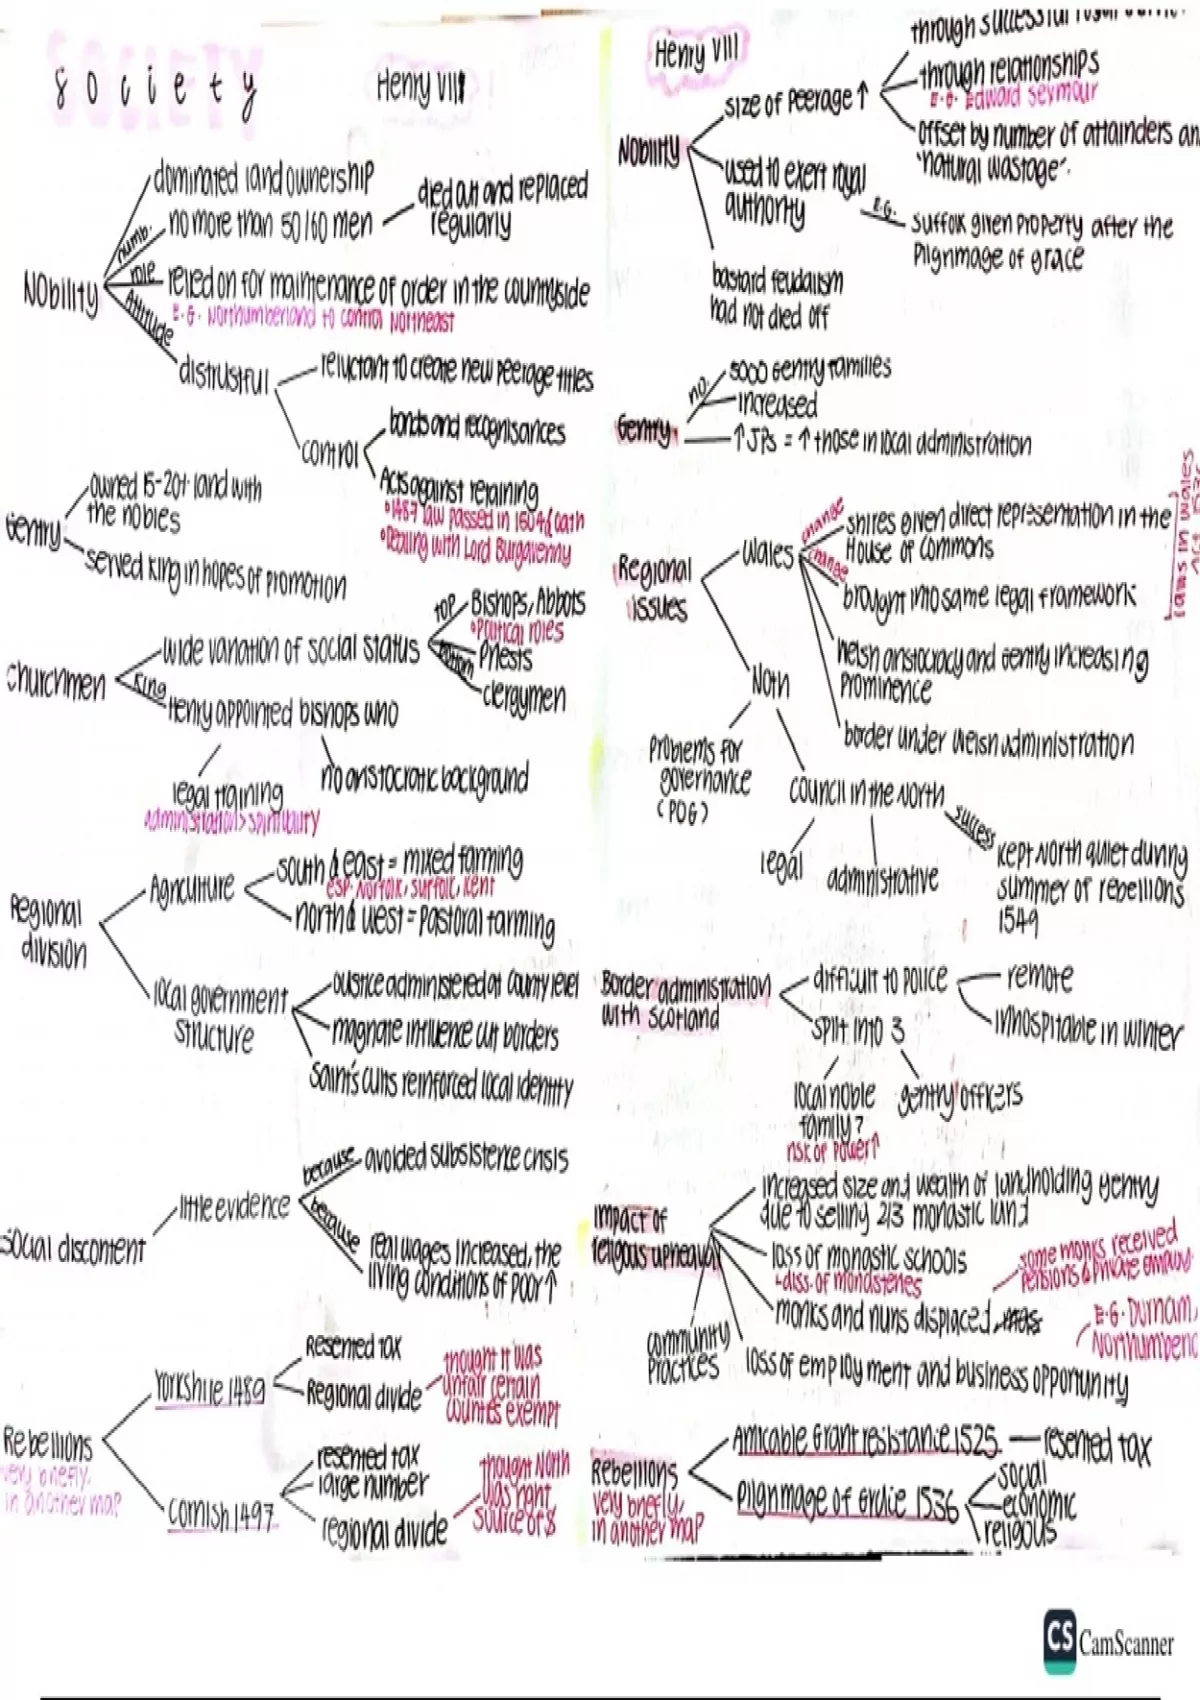 Society
Henry VII
Nobility
numb.
dominated landownership
no more than 50/60 men
died out and replaced
regularly
role
relied on for maintenance of order in the countryside
E.G. Northumberland to control Northeast
Attitude
distrustful
reluctant to create new peerage titles
control
bonds and recognisances
Acts against retaining
1487 law passed in 1504
Dealing with Lord Burgavenny
Gentry
owned 15-20% land with
the nobles
served king in hopes of promotion
Churchmen
wide variation of social status
top
Bishops, Abbots
Political roles
bottom
Priests
clergymen
King
Henry appointed bishops who
legal training
administration > spirituality
no aristocratic background
Regional
division
Agriculture
south & east = mixed farming
esp. Norfolk, Suffolk, Kent
north & west = pastoral farming
local government
structure
Justice administered at County level
magnate influence cut borders
Saints cults reinforced local identity
Social discontent
little evidence
because
avoided subsistence crisis
because
real wages increased, the
living conditions of poor ↑
Rebellions
very briefly,
in another map
Yorkshire 1489
Resented tax
Regional divide
thought it was
unfair certain
counties exempt
Cornish 1497
resented tax
large number
regional divide
thought North
was right
source of $
Henry VIII
Nobility
size of peerage ↑
through successful
through relationships
E.G. Edward Seymour
offset by number of attainders an
'natural wastage'.
used to exert royal
authority
E.G.
Suffolk given property after the
Pilgrimage of grace
bastard feudalism
had not died off
Gentry
no.
5000 Gentry families
increased
↑ JPs = ↑ those in local administration
Regional
issues
Wales
change
shires given direct representation in the
House of Commons
change
brought into same legal framework
Laws in Wales
Act
welsh aristocracy and gentry increasing
prominence
border under welsh administration
North
problems for
governance
(POG)
council in the North
legal
administrative
success
kept North quiet during
summer of rebellions
1549
Border administration
with Scotland
difficult to police
remote
inhospitable in winter
split into 3
local noble
family?
risk of power↑
gentry officers
Impact of
religous upheaval
increased size and wealth of landholding gentry
due to selling 2/3 monastic land
loss of monastic schools
diss. of monasteries
monks and nuns displaced,
some monks received
pensions & private
E.G. Durham,
Northumber
loss of employment and business opportunity
community
practices
Rebellions
very briefly,
in another map
Amicable Grant resistance 1525
resented tax
Pilgrimage of Grace 1536
social
economic
religous
CS CamScanner